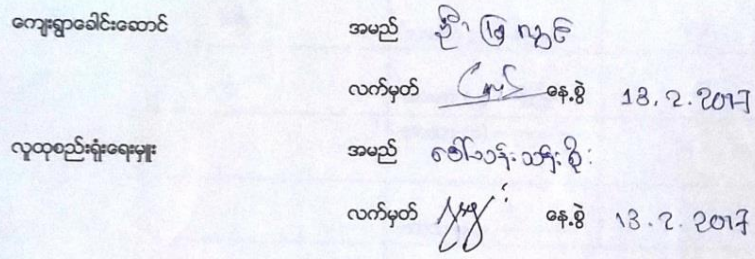 ကျေးရွာခေါင်းဆောင် အမည် ဦးမြလွင်
လက်မှတ် နေ့စွဲ 13.2.2017
လူထုစည်းရုံးရေးမှူး အမည် ဒေါ်သန်းသန်းစိုး
လက်မှတ် နေ့စွဲ 13.2.2017